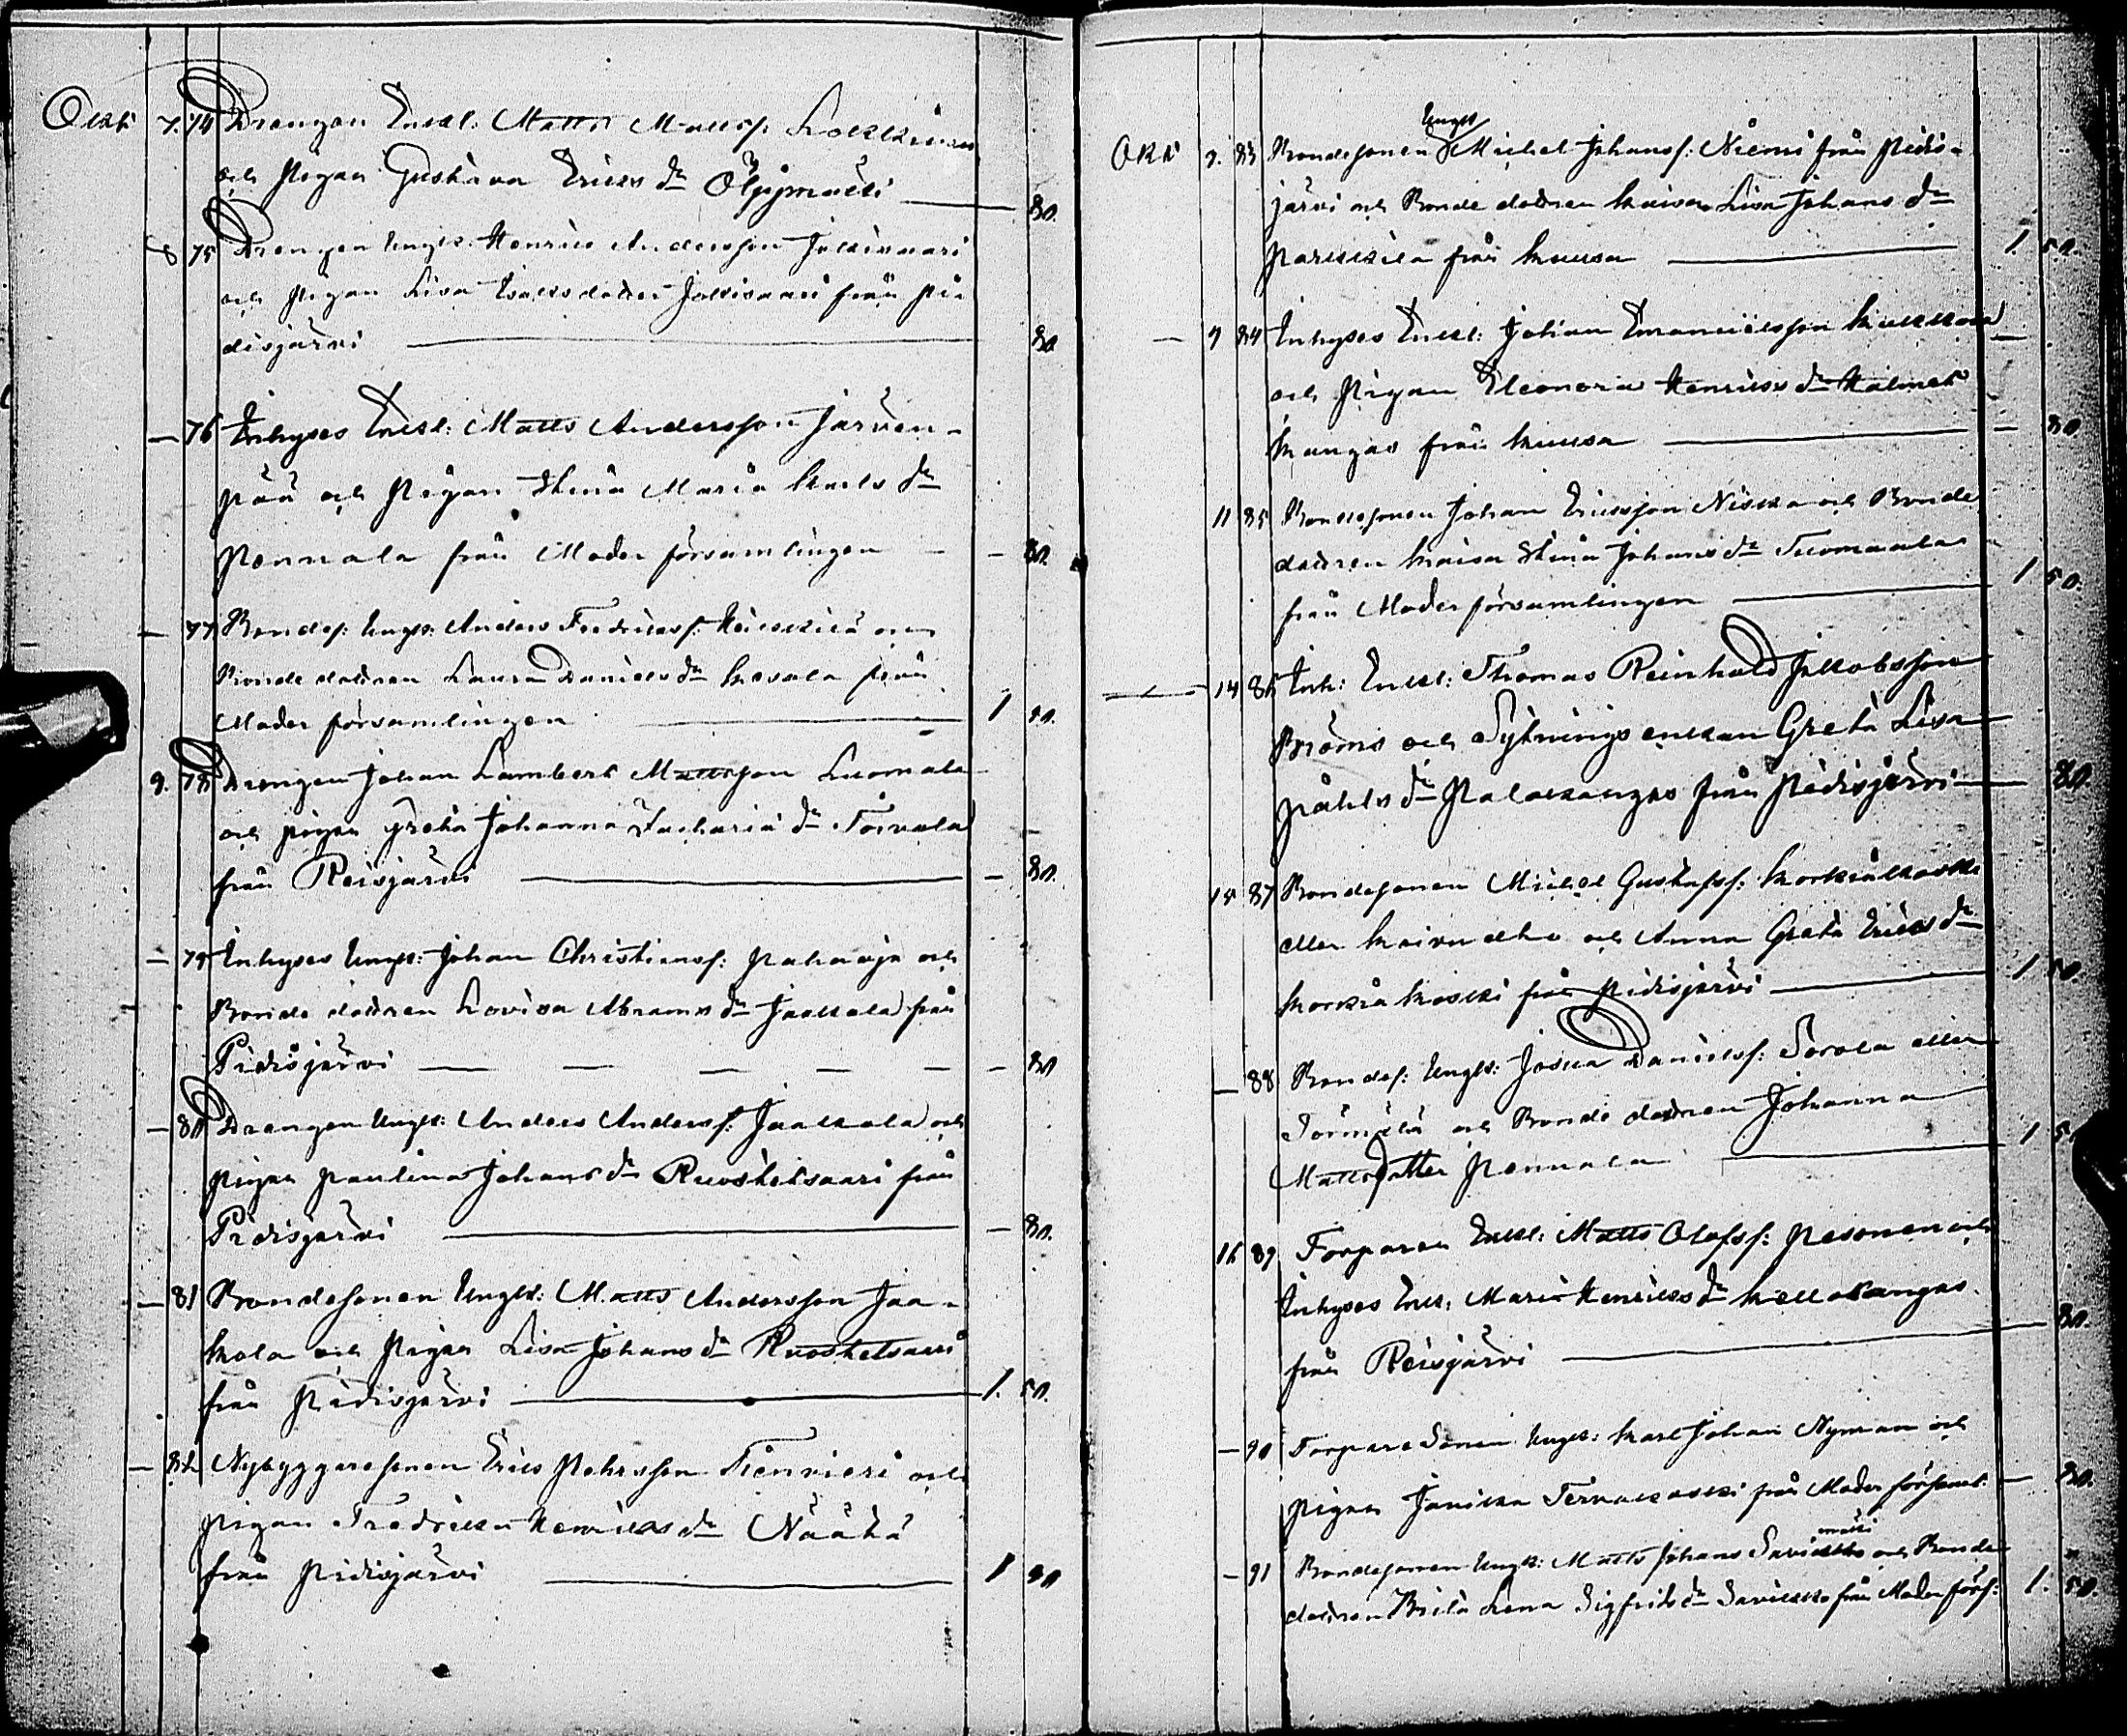 Octb 7. 74 Drengen Enkl: Matts Mattsf: Lokkinen
och Pigan Gustava Ericsdr Ölppmäki — 80.
8 75 Drengen Ungk: Henric Andersson Jokisaari
och Pigan Lisa Isaksdotter Jokisaari från Pi-
disjärvi — 80
— 76 Inhyses Enkl: Matts Andersson Järven-
pää och Pigan Stina Maria Karlsdr
Pennala från Moderförsamlingen — 80.
— 77 Bondes: Ungk: Anders Fredricsf: och
Bondedottren Laura Danielsdr Kesala från
Moderförsamlingen — 1 50.
9. 78 Drengen Johan Lambert Mattsson Luomala
och pigan Greta Johanna Zachariadr Toivala
från Reisjärvi — 80.
— 79 Inhyses Ungk: Johan Christiansf: Pahaoja och
Bondedottren Lovisa Abramsdr Jaakola från
Pidisjärvi — — — — — 80
— 80 Drengen Ungk: Anders Andersf: Jaakola och
pigan Paulina Johansdr Ruosketsaari från
Pidisjärvi — 80.
— 81 Bondesonen Ungk: Matts Andersson Jaa-
kola och Pigan Lisa Johansdr Ruosketsaari
från Pidisjärvi — 1. 50.
— 82 Nybyggaresonen Eric Pehrsson Tienvieri och
pigan Fredrika Henricsdr Näätä
från Pidisjärvi — 1 50
Okt 9. 83 Bondesonen Ungk Michel Johansf: Niemi från Pidis-
järvi och Bondedottren Kaisa Lisa Johansdr
Parkkila från Kuusa — 1. 50.
— 9 84 Inhyses Enkl: Johan Emanuelsson Kukkola
och Pigan Eleonora Henricsdr Halmet
kangas från Kuusa — 80.
11 85 Bondesonen Johan Ericsson Niska och Bonde
dottren Kaisa Stina Johansdr Tuomaala
från Moderförsamlingen — 1 50.
— 14 86 Inh: Enkl: Thomas Reinhold Jakobsson
Broms och Sytningsenkan Greta Lisa
Påhlsdr Palokangas från Pidisjärvi — 80.
15 87 Bondesonen Michel Gustafsf: Korkiakoski
eller Koivuaho och Anna Greta Ericsdr
Korkiakoski från Pidisjärvi — 1 50.
— 88 Bondes: Ungk: Josua Danielsf: Sorola eller
Törmälä och Bondedottren Johanna
Mattsdotter Pennala — 1 50
16 89 Torparen Enkl: Matts Olofsf: Pesonen och
Inhyses Enk, Maria Henricsdr Kellokangas
från Reisjärvi — 80.
— 90 Torparesonen Ungk: Karl Johan Nyman och
pigan Janika Tervakoski från Moderförsaml: — 80.
— 91 Bondesonen Ungk: Matts Johans Savimäki och Bonde
dottren Brita Lena Sigfridsdr från Moderförs: 1. 50.